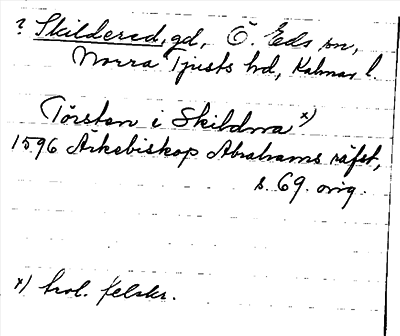 ? Skildered, gd, Ö. Eds sn,
Norra Tjusts hd, Kalmar l.
Törsten i Skildrra x)
1596 Ärkebiskop Abrahams räfst,
s. 69. orig.
x) trol. felskr.